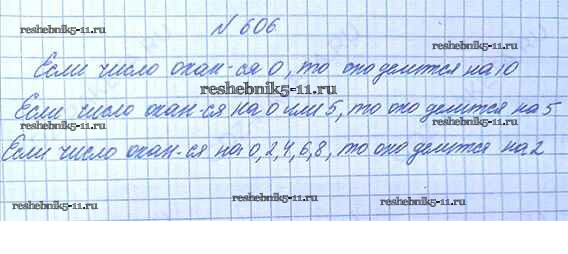 № 606
reshebnik5-11.ru
reshebnik5-11.ru
Если число окан-ся 0, то оно делится на 10
reshebnik5-11.ru
Если число окан-ся на 0 или 5, то оно делится на 5
reshebnik5-11.ru
reshebnik5-11.ru
Если число окан-ся на 0, 2, 4, 6, 8, то оно делится на 2
reshebnik5-11.ru
reshebnik5-11.ru
reshebnik5-11.ru